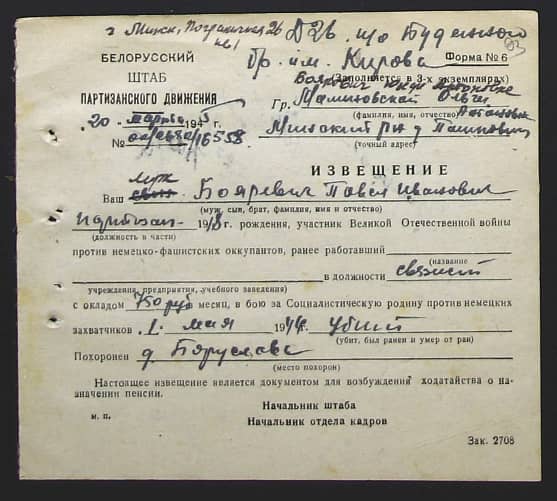 г Минск, Пограничная 26
кв 1
Д 26. п/о Буденного
бр. им. Кирова
93
БЕЛОРУССКИЙ
Форма № 6
ШТАБ
(Заполняется в 3-х экземплярах)
ПАРТИЗАНСКОГО ДВИЖЕНИЯ
Боярович
Гр. Малиновской Ольги
(фамилия, имя, отчество)
„20. марта 1945 г.
№ 16558
Минский р-н д
(точный адрес)
ИЗВЕЩЕНИЕ
муж
Ваш Бояревич Павел Иванович
(муж, сын, брат, фамилия, имя и отчество)
партизан 1918 г. рождения, участник Великой Отечественной войны
(должность в части)
против немецко-фашистских оккупантов, ранее работавший
(название
в должности связной
учреждения, предприятия, учебного заведения)
с окладом 750 руб месяц, в бою за Социалистическую родину против немецких
захватчиков „1. мая 1944 г. убит
(убит, был ранен и умер от ран)
Похоронен д.
(место похорон)
Настоящее извещение является документом для возбуждения ходатайства о на-
значении пенсии.
Начальник штаба
м. п.
Начальник отдела кадров
Зак. 2708